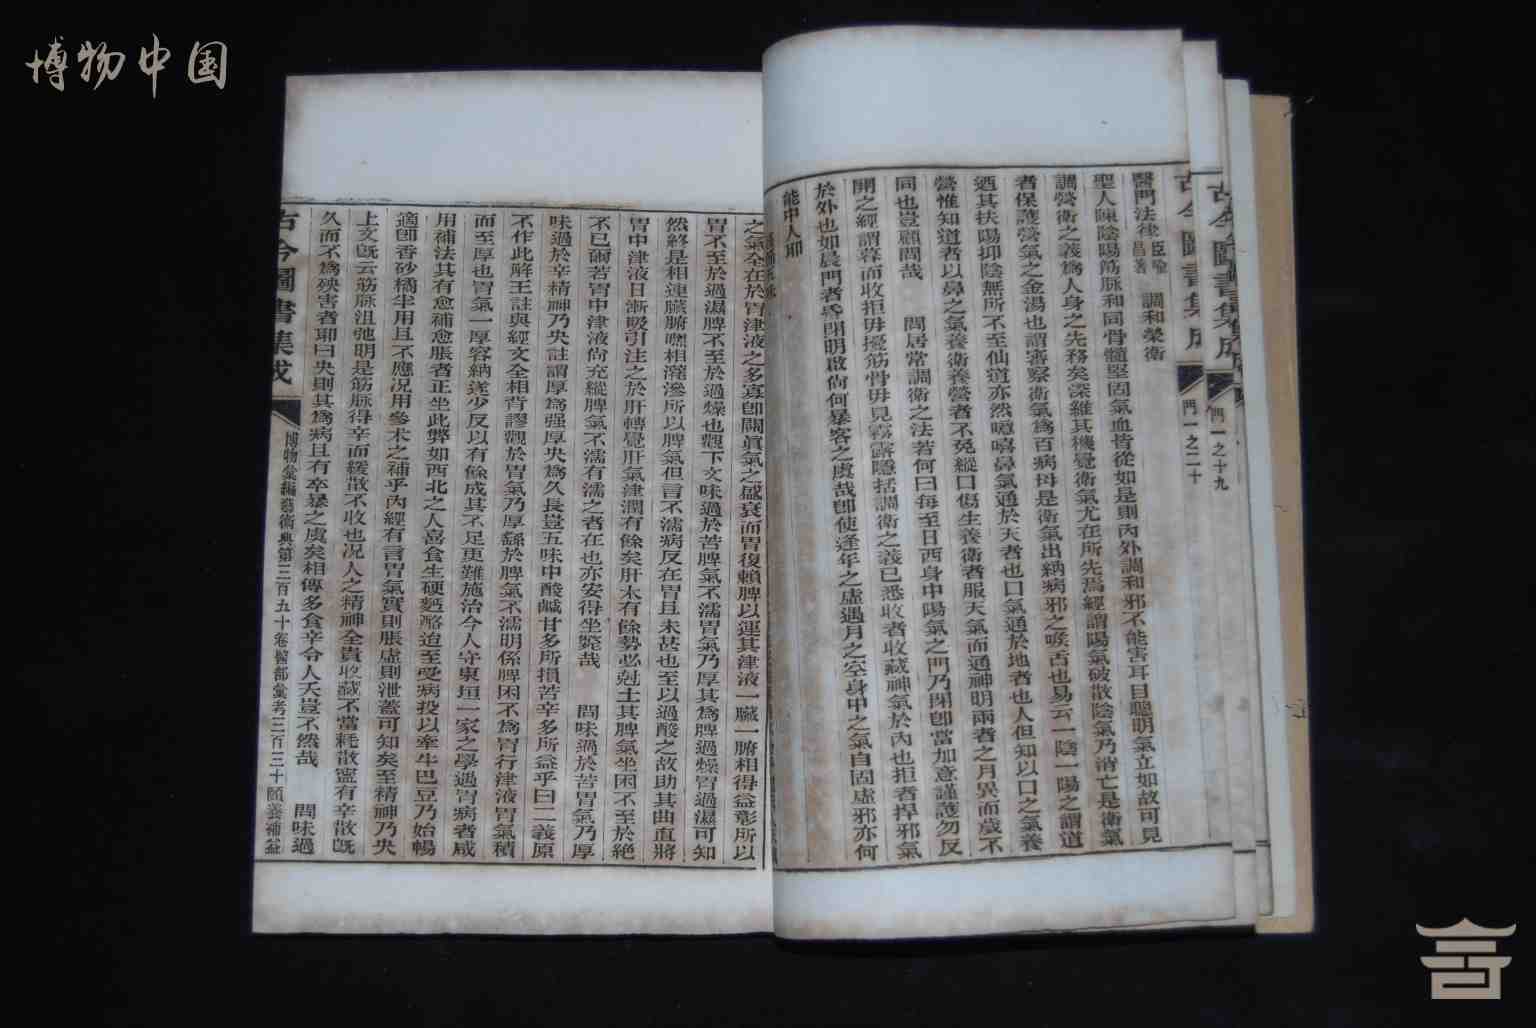 博物中国
古今圖書集成 門一之十九
古今圖書集成 門一之二十
醫門法律 臣喻昌著 調和榮衛
聖人陳陰陽筋脉和同骨髓堅固氣血皆從如是則內外調和邪不能害耳目聰明氣立如故可見
調營衛之義爲人身之先務矣深維其機覺衛氣尤在所先焉經謂陽氣破散陰氣乃消亡是衛氣
者保護營氣之金湯也謂審察衛氣爲百病母是衛氣出納病邪之喉舌也易云一陰一陽之謂道
迺其扶陽抑陰無所不至仙道亦然噫嘻鼻氣通於天者也口氣通於地者也人但知以口之氣養
營惟知道者以鼻之氣養衛養營者不免縱口傷生養衛者服天氣而通神明兩者之月異而歲不
同也豈顧問哉 問居常調衛之法若何曰每至日西身中陽氣之門乃閉卽當加意謹護勿反
開之經謂暮而收拒毋擾筋骨毋見霧露隱括調衛之義已悉收者收藏神氣於內也拒者捍邪氣
於外也如晨門者昏閉明啟尚何暴客之虞哉卽使逢年之虛遇月之空身中之氣自固虛邪亦何
能中人耶
之氣全在於胃津液之多寡卽關眞氣之盛衰而胃復賴脾以運其津液一臟一腑相得益彰所以
胃不至於過濕脾不至於過燥也觀下文味過於苦脾氣不濡胃氣乃厚其爲脾過燥胃過濕可知
然終是相連臟腑嘿相灌滲所以脾氣但言不濡病反在胃且未甚也至以過酸之故助其曲直將
胃中津液日漸吸引注之於肝轉覺肝氣津潤有餘矣肝木有餘勢必尅土其脾氣坐困不至於絕
不已爾若胃中津液尚充縱脾氣不濡有濡之者在也亦安得坐斃哉 問味過於苦胃氣乃厚
味過於辛精神乃央註謂厚爲强厚央爲久長豈五味中酸鹹甘多所損苦辛多所益乎曰二義原
不作此解王註與經文全相背謬觀於胃氣乃厚繇於脾氣不濡明係脾困不爲胃行津液胃氣積
而至厚也胃氣一厚容納遂少反以有餘成其不足更難施治今人守東垣一家之學遇胃病者咸
用補法其有愈補愈脹者正坐此弊如西北之人喜食生硬麪酪迨至受病投以牽牛巴豆乃始暢
適卽香砂橘半用且不應况用參术之補乎內經有言胃氣實則脹虛則泄蓋可知矣至精神乃央
上文旣云筋脉沮弛明是筋脉得辛而緩散不收也况人之精神全貴收藏不當耗散寧有辛散旣
久而不爲殃害者耶曰央則其爲病且有卒暴之虞矣相傳多食辛令人夭豈不然哉 問味過
古今圖書集成 博物彙編藝術典第三百五十卷醫部彙考三百三十頤養補益